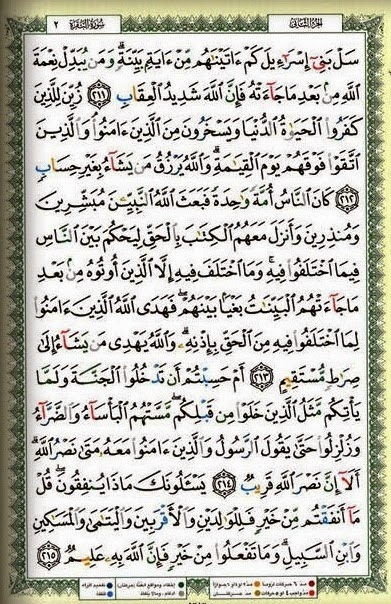 الجزء الثاني ٢ سورة البقرة
سَلْ بَنِىٓ إِسْرَٰٓءِيلَ كَمْ ءَاتَيْنَٰهُم مِّنْ ءَايَةٍۭ بَيِّنَةٍ ۗ وَمَن يُبَدِّلْ نِعْمَةَ
ٱللَّهِ مِنۢ بَعْدِ مَا جَآءَتْهُ فَإِنَّ ٱللَّهَ شَدِيدُ ٱلْعِقَابِ ﴿٢١١﴾ زُيِّنَ لِلَّذِينَ
كَفَرُوا۟ ٱلْحَيَوٰةُ ٱلدُّنْيَا وَيَسْخَرُونَ مِنَ ٱلَّذِينَ ءَامَنُوا۟ ۘ وَٱلَّذِينَ
ٱتَّقَوْا۟ فَوْقَهُمْ يَوْمَ ٱلْقِيَٰمَةِ ۗ وَٱللَّهُ يَرْزُقُ مَن يَشَآءُ بِغَيْرِ حِسَابٍ
﴿٢١٢﴾ كَانَ ٱلنَّاسُ أُمَّةً وَٰحِدَةً فَبَعَثَ ٱللَّهُ ٱلنَّبِيِّۦنَ مُبَشِّرِينَ
وَمُنذِرِينَ وَأَنزَلَ مَعَهُمُ ٱلْكِتَٰبَ بِٱلْحَقِّ لِيَحْكُمَ بَيْنَ ٱلنَّاسِ
فِيمَا ٱخْتَلَفُوا۟ فِيهِ ۚ وَمَا ٱخْتَلَفَ فِيهِ إِلَّا ٱلَّذِينَ أُوتُوهُ مِنۢ بَعْدِ
مَا جَآءَتْهُمُ ٱلْبَيِّنَٰتُ بَغْيًۢا بَيْنَهُمْ ۖ فَهَدَى ٱللَّهُ ٱلَّذِينَ ءَامَنُوا۟
لِمَا ٱخْتَلَفُوا۟ فِيهِ مِنَ ٱلْحَقِّ بِإِذْنِهِۦ ۗ وَٱللَّهُ يَهْدِى مَن يَشَآءُ إِلَىٰ
صِرَٰطٍ مُّسْتَقِيمٍ ﴿٢١٣﴾ أَمْ حَسِبْتُمْ أَن تَدْخُلُوا۟ ٱلْجَنَّةَ وَلَمَّا
يَأْتِكُم مَّثَلُ ٱلَّذِينَ خَلَوْا۟ مِن قَبْلِكُم ۖ مَّسَّتْهُمُ ٱلْبَأْسَآءُ وَٱلضَّرَّآءُ
وَزُلْزِلُوا۟ حَتَّىٰ يَقُولَ ٱلرَّسُولُ وَٱلَّذِينَ ءَامَنُوا۟ مَعَهُۥ مَتَىٰ نَصْرُ ٱللَّهِ ۗ
أَلَآ إِنَّ نَصْرَ ٱللَّهِ قَرِيبٌ ﴿٢١٤﴾ يَسْـَٔلُونَكَ مَاذَا يُنفِقُونَ ۖ قُلْ
مَآ أَنفَقْتُم مِّنْ خَيْرٍ فَلِلْوَٰلِدَيْنِ وَٱلْأَقْرَبِينَ وَٱلْيَتَٰمَىٰ وَٱلْمَسَٰكِينِ
وَٱبْنِ ٱلسَّبِيلِ ۗ وَمَا تَفْعَلُوا۟ مِنْ خَيْرٍ فَإِنَّ ٱللَّهَ بِهِۦ عَلِيمٌ ﴿٢١٥﴾